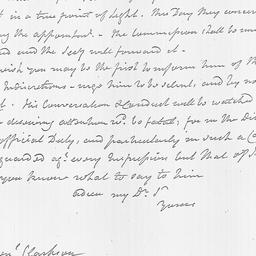 t in a true point of Light. This Day they concur
ing the appointmt. - The Commission shall be ma
ed and the Secty will forward it -
wish you may be the first to inform him of th
Indiscretions - urge him to be silent, and by no
t. His Conversation & Conduct will be watched
deserving attention wd. be fatal; for in the Di
official Duty, and particularly in such a
guarded agt. every Impression but that of
you know what to say to him
adieu my Dr. Sr
Yours
Clarkson